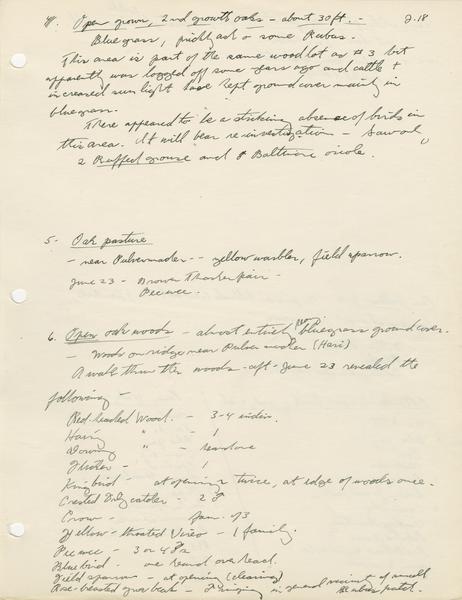 4. Open grown, 2nd growth oaks - about 30 ft. - 2.18
Bluegrass, prickly ash & some Rubus.
This area is part of the same wood lot as #3 but
apparently was logged off some years ago and cattle +
increased sun light have kept ground cover mainly in
bluegrass.
There appeared to be a striking absence of birds in
this area. It will bear re-investigation - Saw only
2 Ruffed grouse and Baltimore oriole.
5. Oak pasture
- near -- yellow warbler, field sparrow.
June 23 - Brown Thrasher pair -
Peewee.
6. Open oak woods - almost entirely bluegrass ground cover.
- Woods on ridge near
A walk thru the woods - aft - June 23 revealed the
following -
Red-headed Wood. - 3-4 indiv.
Hairy " - 1
Downy " - heard one
Flicker - 1
Kingbird - at opening twice, at edge of woods once.
Crested Flycatcher - 2
Crow - fam. of 3
Yellow-throated Vireo - 1 family.
Peewee - 3 or 4
Bluebird - one heard overhead.
Field sparrow - at opening (clearing)
Rose-breasted grosbeak - singing in general vicinity of small